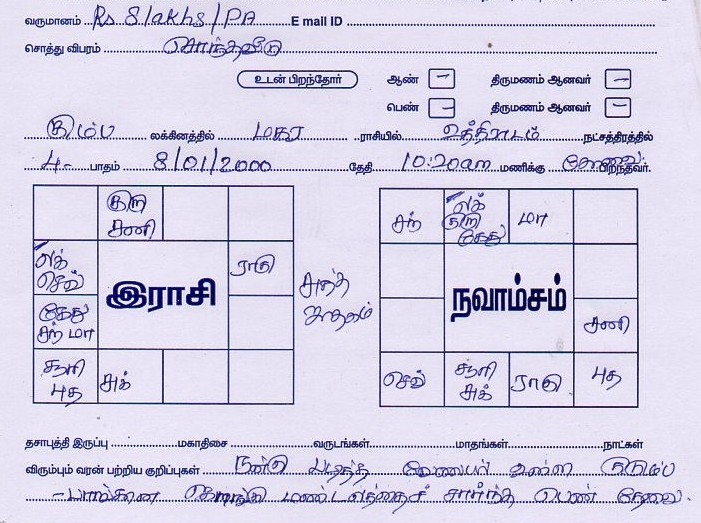 வருமானம் Rs 8/akhs/PA E mail ID
சொத்து விபரம் சொந்தவீடு
உடன் பிறந்தோர் ஆண் - திருமணம் ஆனவர் -
பெண் - திருமணம் ஆனவர் -
கும்ப லக்கினத்தில் மகர ராசியில் உத்திராடம் நட்சத்திரத்தில்
4- பாதம் 8/01/2000 தேதி 10:20am மணிக்கு பிறந்தவர்.
குரு சனி
லக் செவ் ராகு
இராசி
கேது சுக் மா
சூரி புத சுக்
சுத்த ஜாதகம்
சுக் லக் குரு கேது மா
நவாம்சம்
சனி
செவ் சூரி சுக் ராகு புத
தசாபுத்தி இருப்பு மகாதிசை வருடங்கள் மாதங்கள் நாட்கள்
விரும்பும் வரன் பற்றிய குறிப்புகள் நன்கு படித்த உள்ள குடும்ப
கொங்கு மண்டலத்தைச் சார்ந்த பெண் தேவை.